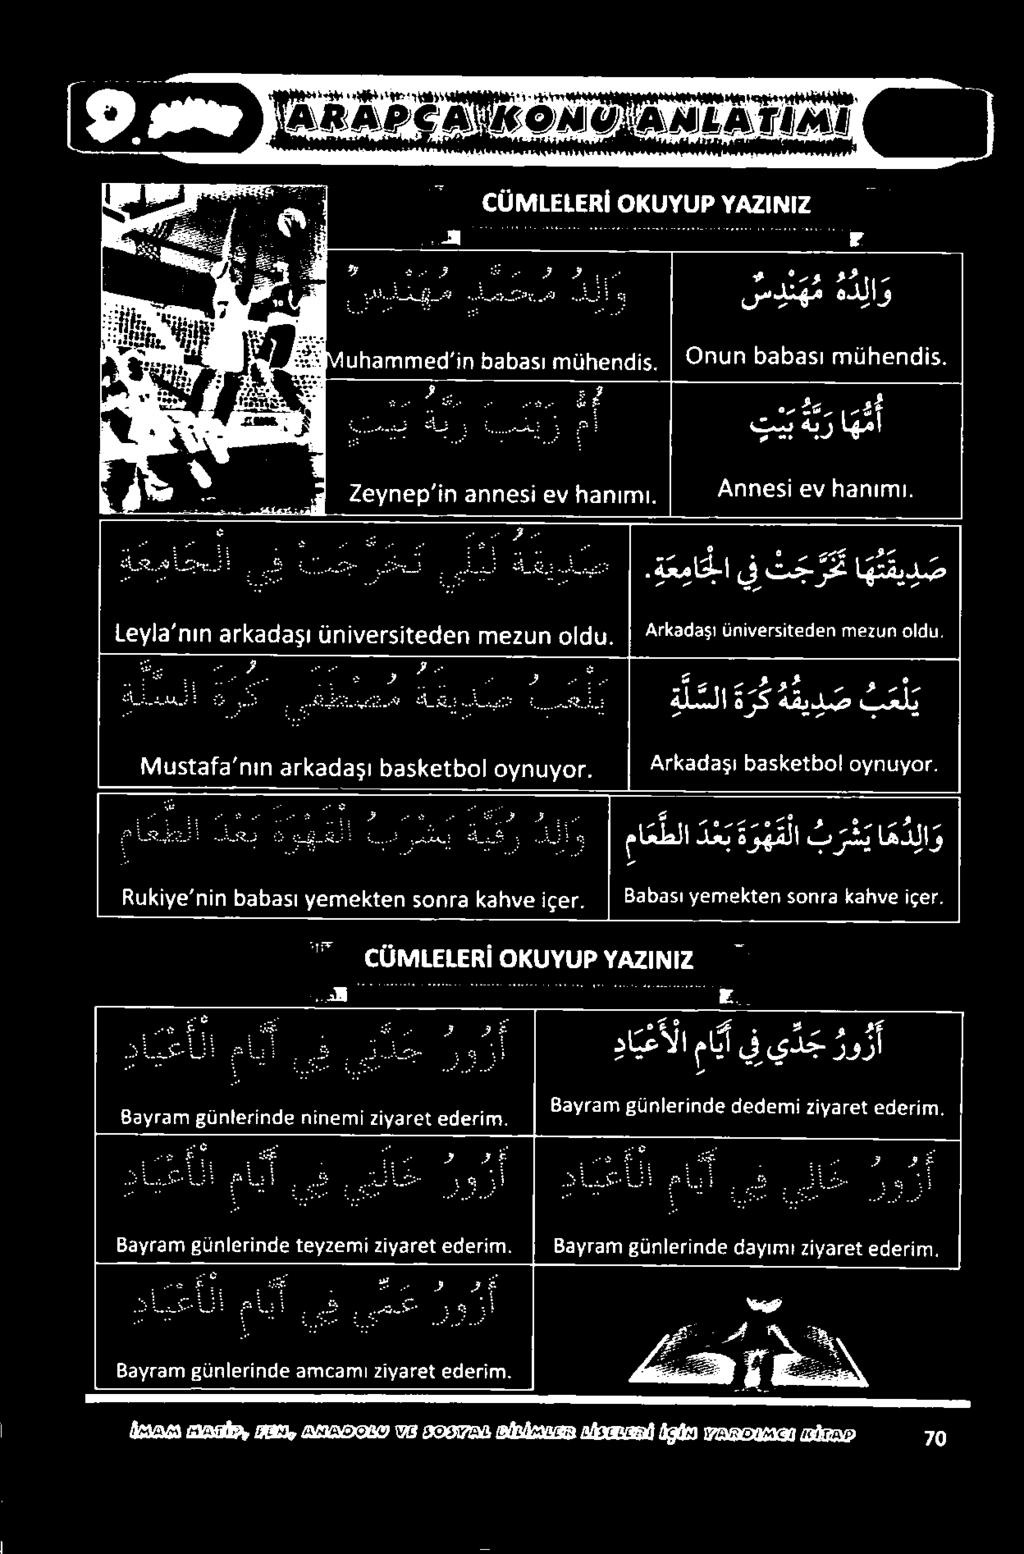 9. SINIF
ARAPÇA KONU ANLATIMI
CÜMLELERİ OKUYUP YAZINIZ
وَالِدُ مُحَمَّدٍ مُهَنْدِسٌ
وَالِدُهُ مُهَنْدِسٌ
Muhammed'in babası mühendis.
Onun babası mühendis.
أُمُّ زَيْنَبَ رَبَّةُ بَيْتٍ
أُمُّهَا رَبَّةُ بَيْتٍ
Zeynep'in annesi ev hanımı.
Annesi ev hanımı.
صَدِيقَةُ لَيْلَي تَخَرَّجَتْ فِي الْجَامِعَةِ
صَدِيقَتُهَا تَخَرَّجَتْ فِي الْجَامِعَةِ.
Leyla'nın arkadaşı üniversiteden mezun oldu.
Arkadaşı üniversiteden mezun oldu.
يَلْعَبُ صَدِيقُهُ مُصْطَفَي كُرَةَ السَّلَّةِ
يَلْعَبُ صَدِيقُهُ كُرَةَ السَّلَّةِ
Mustafa'nın arkadaşı basketbol oynuyor.
Arkadaşı basketbol oynuyor.
وَالِدُ رُقَيَّةَ يَشْرَبُ الْقَهْوَةَ بَعْدَ الطَّعَامِ
وَالِدُهَا يَشْرَبُ الْقَهْوَةَ بَعْدَ الطَّعَامِ
Rukiye'nin babası yemekten sonra kahve içer.
Babası yemekten sonra kahve içer.
CÜMLELERİ OKUYUP YAZINIZ
أَزُورُ جَدَّتِي فِي أَيَّامِ الْأَعْيَادِ
أَزُورُ جَدِّي فِي أَيَّامِ الْأَعْيَادِ
Bayram günlerinde ninemi ziyaret ederim.
Bayram günlerinde dedemi ziyaret ederim.
أَزُورُ خَالَتِي فِي أَيَّامِ الْأَعْيَادِ
أَزُورُ خَالِي فِي أَيَّامِ الْأَعْيَادِ
Bayram günlerinde teyzemi ziyaret ederim.
Bayram günlerinde dayımı ziyaret ederim.
أَزُورُ عَمِّي فِي أَيَّامِ الْأَعْيَادِ
Bayram günlerinde amcamı ziyaret ederim.
İMAM HATİP, FEN, ANADOLU VE SOSYAL BİLİMLER LİSELERİ İÇİN YARDIMCI KİTAP
70